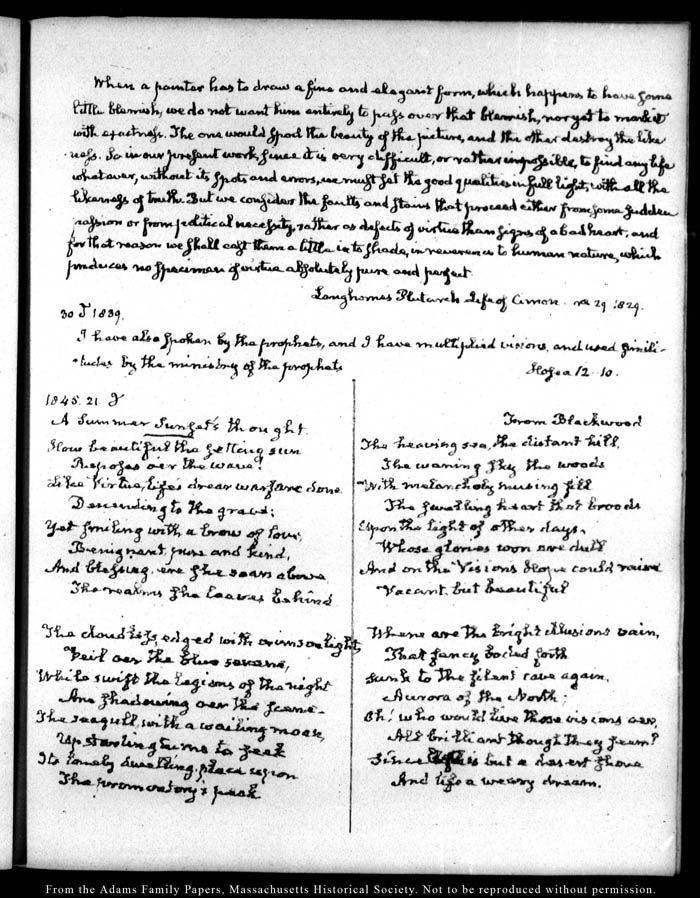 When a painter has to draw a fine and elegant form, which happens to have some
little blemish, we do not want him entirely to pass over that blemish, nor yet to mark it
with exactness. The one would spoil the beauty of the picture, and the other destroy the like
ness. So in our present work, since it is very difficult, or rather impossible, to find any life
whatever, without its spots and errors, we must set the good qualities in full light, with all the
likeness of truth. But we consider the faults and stains that proceed either from some sudden
passion or from political necessity, rather as defects of virtue than signs of a bad heart. and
for that reason we shall cast them a little into shade, in reverence to human nature, which
produces no specimen of virtue absolutely pure and perfect.
Langhorne's Plutarch Life of Cimon. 29 1829.
30 1839.
I have also spoken by the prophets, and I have multiplied visions, and used simili-
tudes by the ministry of the prophets
Hosea 12. 10.
1845. 21.
A Summer Sunset's thought.
How beautiful the setting sun
Reposes oer the wave!
Like Virtue, life's drear warfare done
Descending to the grave;
Yet smiling with a brow of love,
Benignant, pure and kind,
And blessing, ere she soars above
The realms she leaves behind
The cloudlets, edged with crimson light,
Veil oer the blue serene,
While swift the legions of the night
Are shadowing oer the scene.
The seagull, with a wailing moan,
Upstarting turns to seek
Its lonely dwelling place upon
The promontory's peak
From Blackwood
The heaving sea, the distant hill,
The waning sky the woods
With melancholy musing fill
The swelling heart that broods
Upon the light of other days,
Whose glories now are dull
And on the Visions Hope could raise
Vacant, but beautiful
Where are the bright illusions vain,
That fancy bodied forth
Sunk to the silent cave again,
Aurora of the North;
Oh! who would live those visions oer,
All brilliant though they seem?
Since is but a desert shore
And life a weary dream.
From the Adams Family Papers, Massachusetts Historical Society. Not to be reproduced without permission.